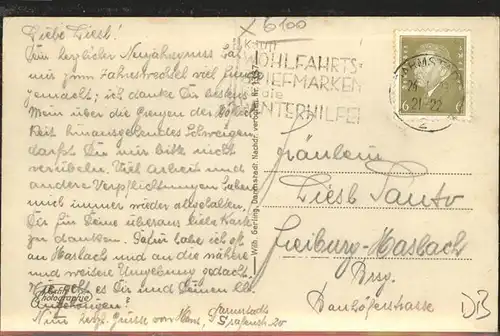 x 6100
Liebe Liesl!
Ein herzlicher Neujahrsgruss hat
mir zum Jahreswechsel viel Freude
gemacht; ich danke Dir bestens.
Mein über die Grenzen der Höflich
keit hinausgehendes Schweigen
darfst Du mir bitte nicht
verübeln. Viel Arbeit und
andere Verpflichtungen haben
mich immer wieder abgehalten,
Dir für Deine überaus liebe Karte
zu danken. Dafür habe ich oft
an Haslach und an die nähere
und weitere Umgebung gedacht.
Wie geht es Dir und Deinen lb.
Angehörigen?
Nun herzl. Grüsse von Hans, Darmstadt,
Grafenstr. 20
Echte
Photographie
Wilh. Gerling, Darmstadt. Nachdr. verboten. Nr.
Kauft
WOHLFAHRTS-
BRIEFMARKEN
die
WINTERHILFE!
DARMSTADT
21-22
2
6 6
Fräulein
Liesl Santo
Freiburg-Haslach
Brsg.
Bauhöferstrasse
DB